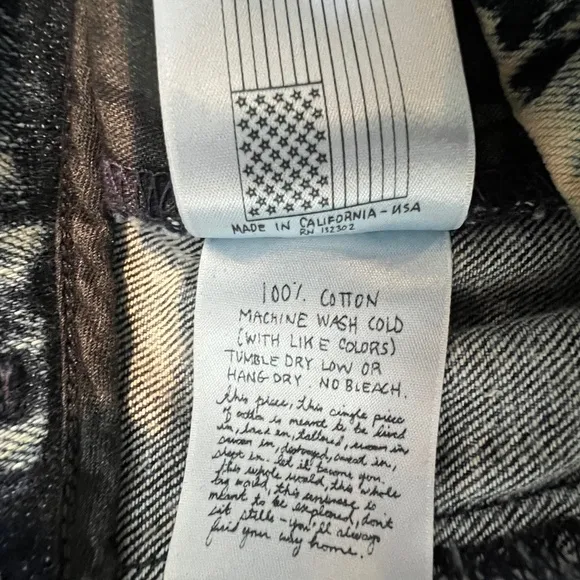 MADE IN CALIFORNIA - USA
RN 132302
100% COTTON
MACHINE WASH COLD
(WITH LIKE COLORS)
TUMBLE DRY LOW OR
HANG DRY. NO BLEACH.
this piece, this single piece
of cotton is meant to be lived
in, in, tattered, in
in, destroyed, sweat in,
slept in. let it become you.
this whole world, this whole
big world, this universe is
meant to be explored, don't
sit still - you'll always
find your way home.